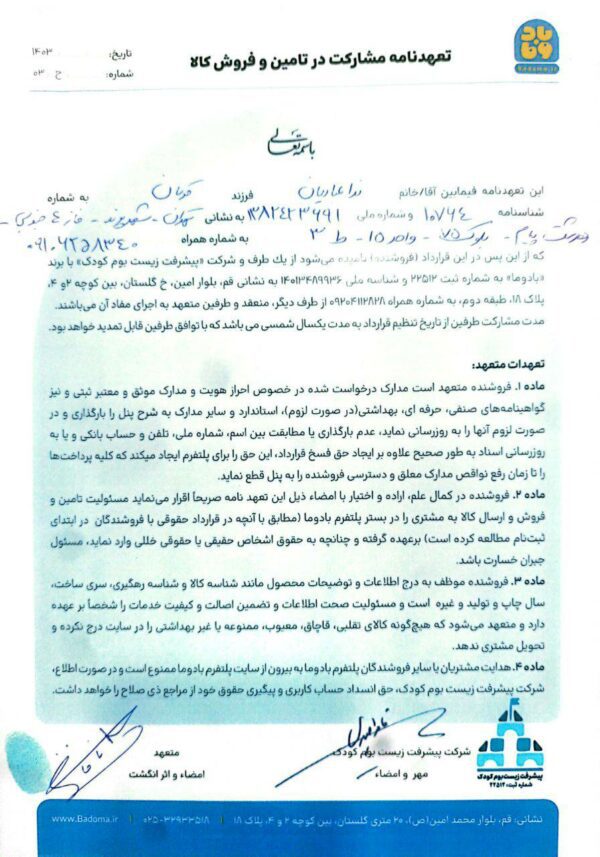 بادوما
Badoma.ir
تعهدنامه مشارکت در تامین و فروش کالا
تاریخ: ۱۴۰۳
شماره: ح ۰۳
باسمه تعالی
این تعهدنامه فیمابین آقا/خانم ندا عماریان فرزند قربان به شماره
شناسنامه ۱۰۷۶۴ و شماره ملی ۱۳۸۲۴۲۳۶۹۱ به نشانی تهران - شهرک پرند - فاز ۴
پیام - بلوک ۷۵ - واحد ۱۵ - ط ۳ به شماره همراه
که از این پس در این قرارداد (فروشنده) نامیده می‌شود از یک طرف و شرکت «پیشرفت زیست بوم کودک» با برند
«بادوما» به شماره ثبت ۲۲۵۱۲ و شناسه ملی ۱۴۰۱۳۴۸۹۹۳۶ به نشانی قم، بلوار امین، خ گلستان، بین کوچه ۲ و ۴،
پلاک ۱۸، طبقه دوم، به شماره همراه ۰۹۲۰۴۱۱۲۸۲۸ از طرف دیگر، منعقد و طرفین متعهد به اجرای مفاد آن می‌باشند.
مدت مشارکت طرفین از تاریخ تنظیم قرارداد به مدت یکسال شمسی می باشد که با توافق طرفین قابل تمدید خواهد بود.
تعهدات متعهد:
ماده ۱. فروشنده متعهد است مدارک درخواست شده در خصوص احراز هویت و مدارک موثق و معتبر ثبتی و نیز
گواهینامه‌های صنفی، حرفه ای، بهداشتی(در صورت لزوم)، استاندارد و سایر مدارک به شرح پنل را بارگذاری و در
صورت لزوم آنها را به روزرسانی نماید، عدم بارگذاری یا مطابقت بین اسم، شماره ملی، تلفن و حساب بانکی و یا به
روزرسانی اسناد به طور صحیح علاوه بر ایجاد حق فسخ قرارداد، این حق را برای پلتفرم ایجاد میکند که کلیه پرداخت‌ها
را تا زمان رفع نواقص مدارک معلق و دسترسی فروشنده را به پنل قطع نماید.
ماده ۲. فروشنده در کمال علم، اراده و اختیار با امضاء ذیل این تعهد نامه صریحاً اقرار می‌نماید مسئولیت تامین و
فروش و ارسال کالا به مشتری را در بستر پلتفرم بادوما (مطابق با آنچه در قرارداد حقوقی با فروشندگان در ابتدای
ثبت‌نام مطالعه کرده است) برعهده گرفته و چنانچه به حقوق اشخاص حقیقی یا حقوقی خللی وارد نماید، مسئول
جبران خسارت باشد.
ماده ۳. فروشنده موظف به درج اطلاعات و توضیحات محصول مانند شناسه کالا و شناسه رهگیری، سری ساخت،
سال چاپ و تولید و غیره است و مسئولیت صحت اطلاعات و تضمین اصالت و کیفیت خدمات را شخصاً بر عهده
دارد و متعهد می‌شود که هیچ‌گونه کالای تقلبی، قاچاق، معیوب، ممنوعه یا غیر بهداشتی را در سایت درج نکرده و
تحویل مشتری ندهد.
ماده ۴. هدایت مشتریان یا سایر فروشندگان پلتفرم بادوما به بیرون از سایت پلتفرم بادوما ممنوع است و در صورت اطلاع،
شرکت پیشرفت زیست بوم کودک، حق انسداد حساب کاربری و پیگیری حقوق خود از مراجع ذی صلاح را خواهد داشت.
پیشرفت زیست بوم کودک
شماره ثبت: ۲۲۵۱۲
شرکت پیشرفت زیست بوم کودک
مهر و امضاء
متعهد
امضاء و اثر انگشت
نشانی: قم، بلوار محمد امین(ص)، ۲۰ متری گلستان، بین کوچه ۲ و ۴، پلاک ۱۸ | ۰۲۵-۳۲۹۳۳۵۱۸ | www.Badoma.ir